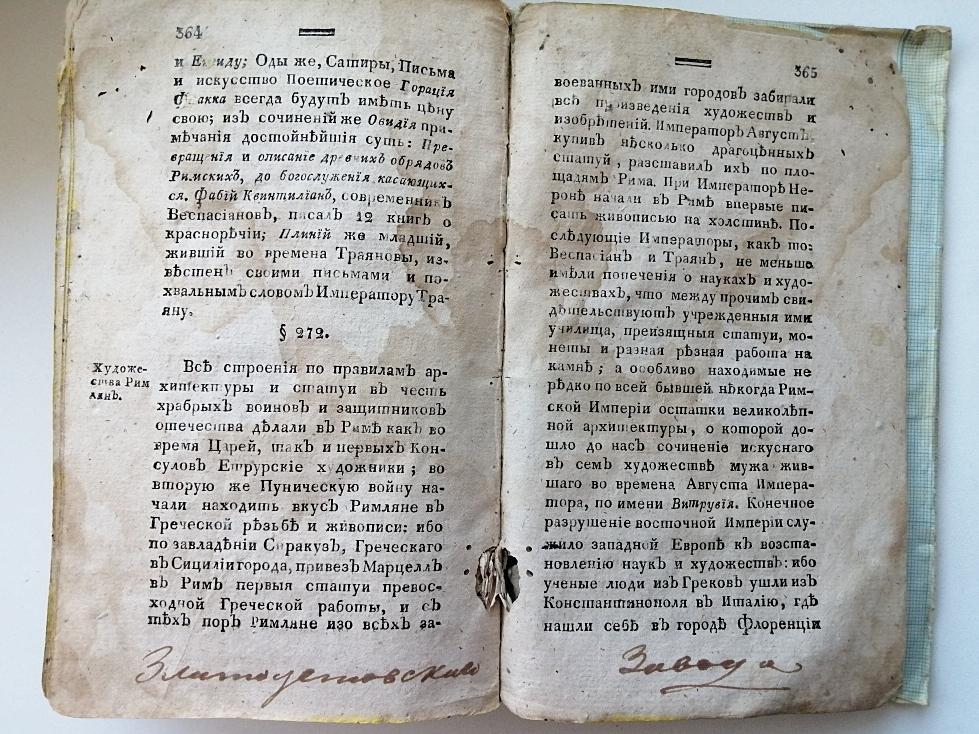 364
и Енеиду; Оды же, Сатиры, Письма
и искусство Поетическое Горація
Флакка всегда будутъ имѣть цѣну
свою; изъ сочиненій же Овидія при-
мѣчанія достойнѣйшія суть: Пре-
вращенія и описаніе древнихъ обрядовъ
Римскихъ, до богослуженія касающих-
ся. Фабій Квинтиліанъ, современникъ
Веспасіановъ, писалъ 12 книгъ о
краснорѣчіи; Плиній же младшій,
жившій во времена Траяновы, из-
вѣстенъ своими письмами и по-
хвальнымъ словомъ Императору Тра-
яну.
§ 272.
Художе-
ства Рим
лянъ.
Всѣ строенія по правиламъ ар-
хитектуры и статуи въ честь
храбрыхъ воиновъ и защитниковъ
отечества дѣлали въ Римѣ какъ во
время Царей, такъ и первыхъ Кон-
суловъ Етрурскіе художники; во
вторую же Пуническую войну на-
чали находить вкусъ Римляне въ
Греческой рѣзьбѣ и живописи: ибо
по завладѣніи Сиракузъ, Греческаго
въ Сициліи города, привезъ Марцеллъ
въ Римъ первыя статуи превос-
ходной Греческой работы, и съ
тѣхъ поръ Римляне изо всѣхъ за-
Златоустовскаго
365
воеванныхъ ими городовъ забирали
всѣ произведенія художествъ и
изобрѣтеній. Императоръ Августъ,
купивъ нѣсколько драгоцѣнныхъ
статуй, разставилъ ихъ по пло-
щадямъ Рима. При Императорѣ Не-
ронѣ начали въ Римѣ впервые пи-
сать живописью на холстинѣ. По-
слѣдующіе Императоры, какъ то:
Веспасіанъ и Траянъ, не меньше
имѣли попеченія о наукахъ и худо-
жествахъ, что между прочимъ сви-
дѣтельствуютъ учрежденныя ими
училища, преизящныя статуи, мо-
неты и разная рѣзная работа на
камнѣ; а особливо находимые не
рѣдко по всей бывшей нѣкогда Рим-
ской Имперіи остатки великолѣп-
ной архитектуры, о которой до-
шло до насъ сочиненіе искуснаго
въ семъ художествѣ мужа жив-
шаго во времена Августа Импера-
тора, по имени Витрувія. Конечное
разрушеніе восточной Имперіи слу-
жило западной Европѣ къ возста-
новленію наукъ и художествъ: ибо
ученые люди изъ Грековъ ушли изъ
Константинополя въ Италію, гдѣ
нашли себѣ въ городѣ Флоренціи
Завода